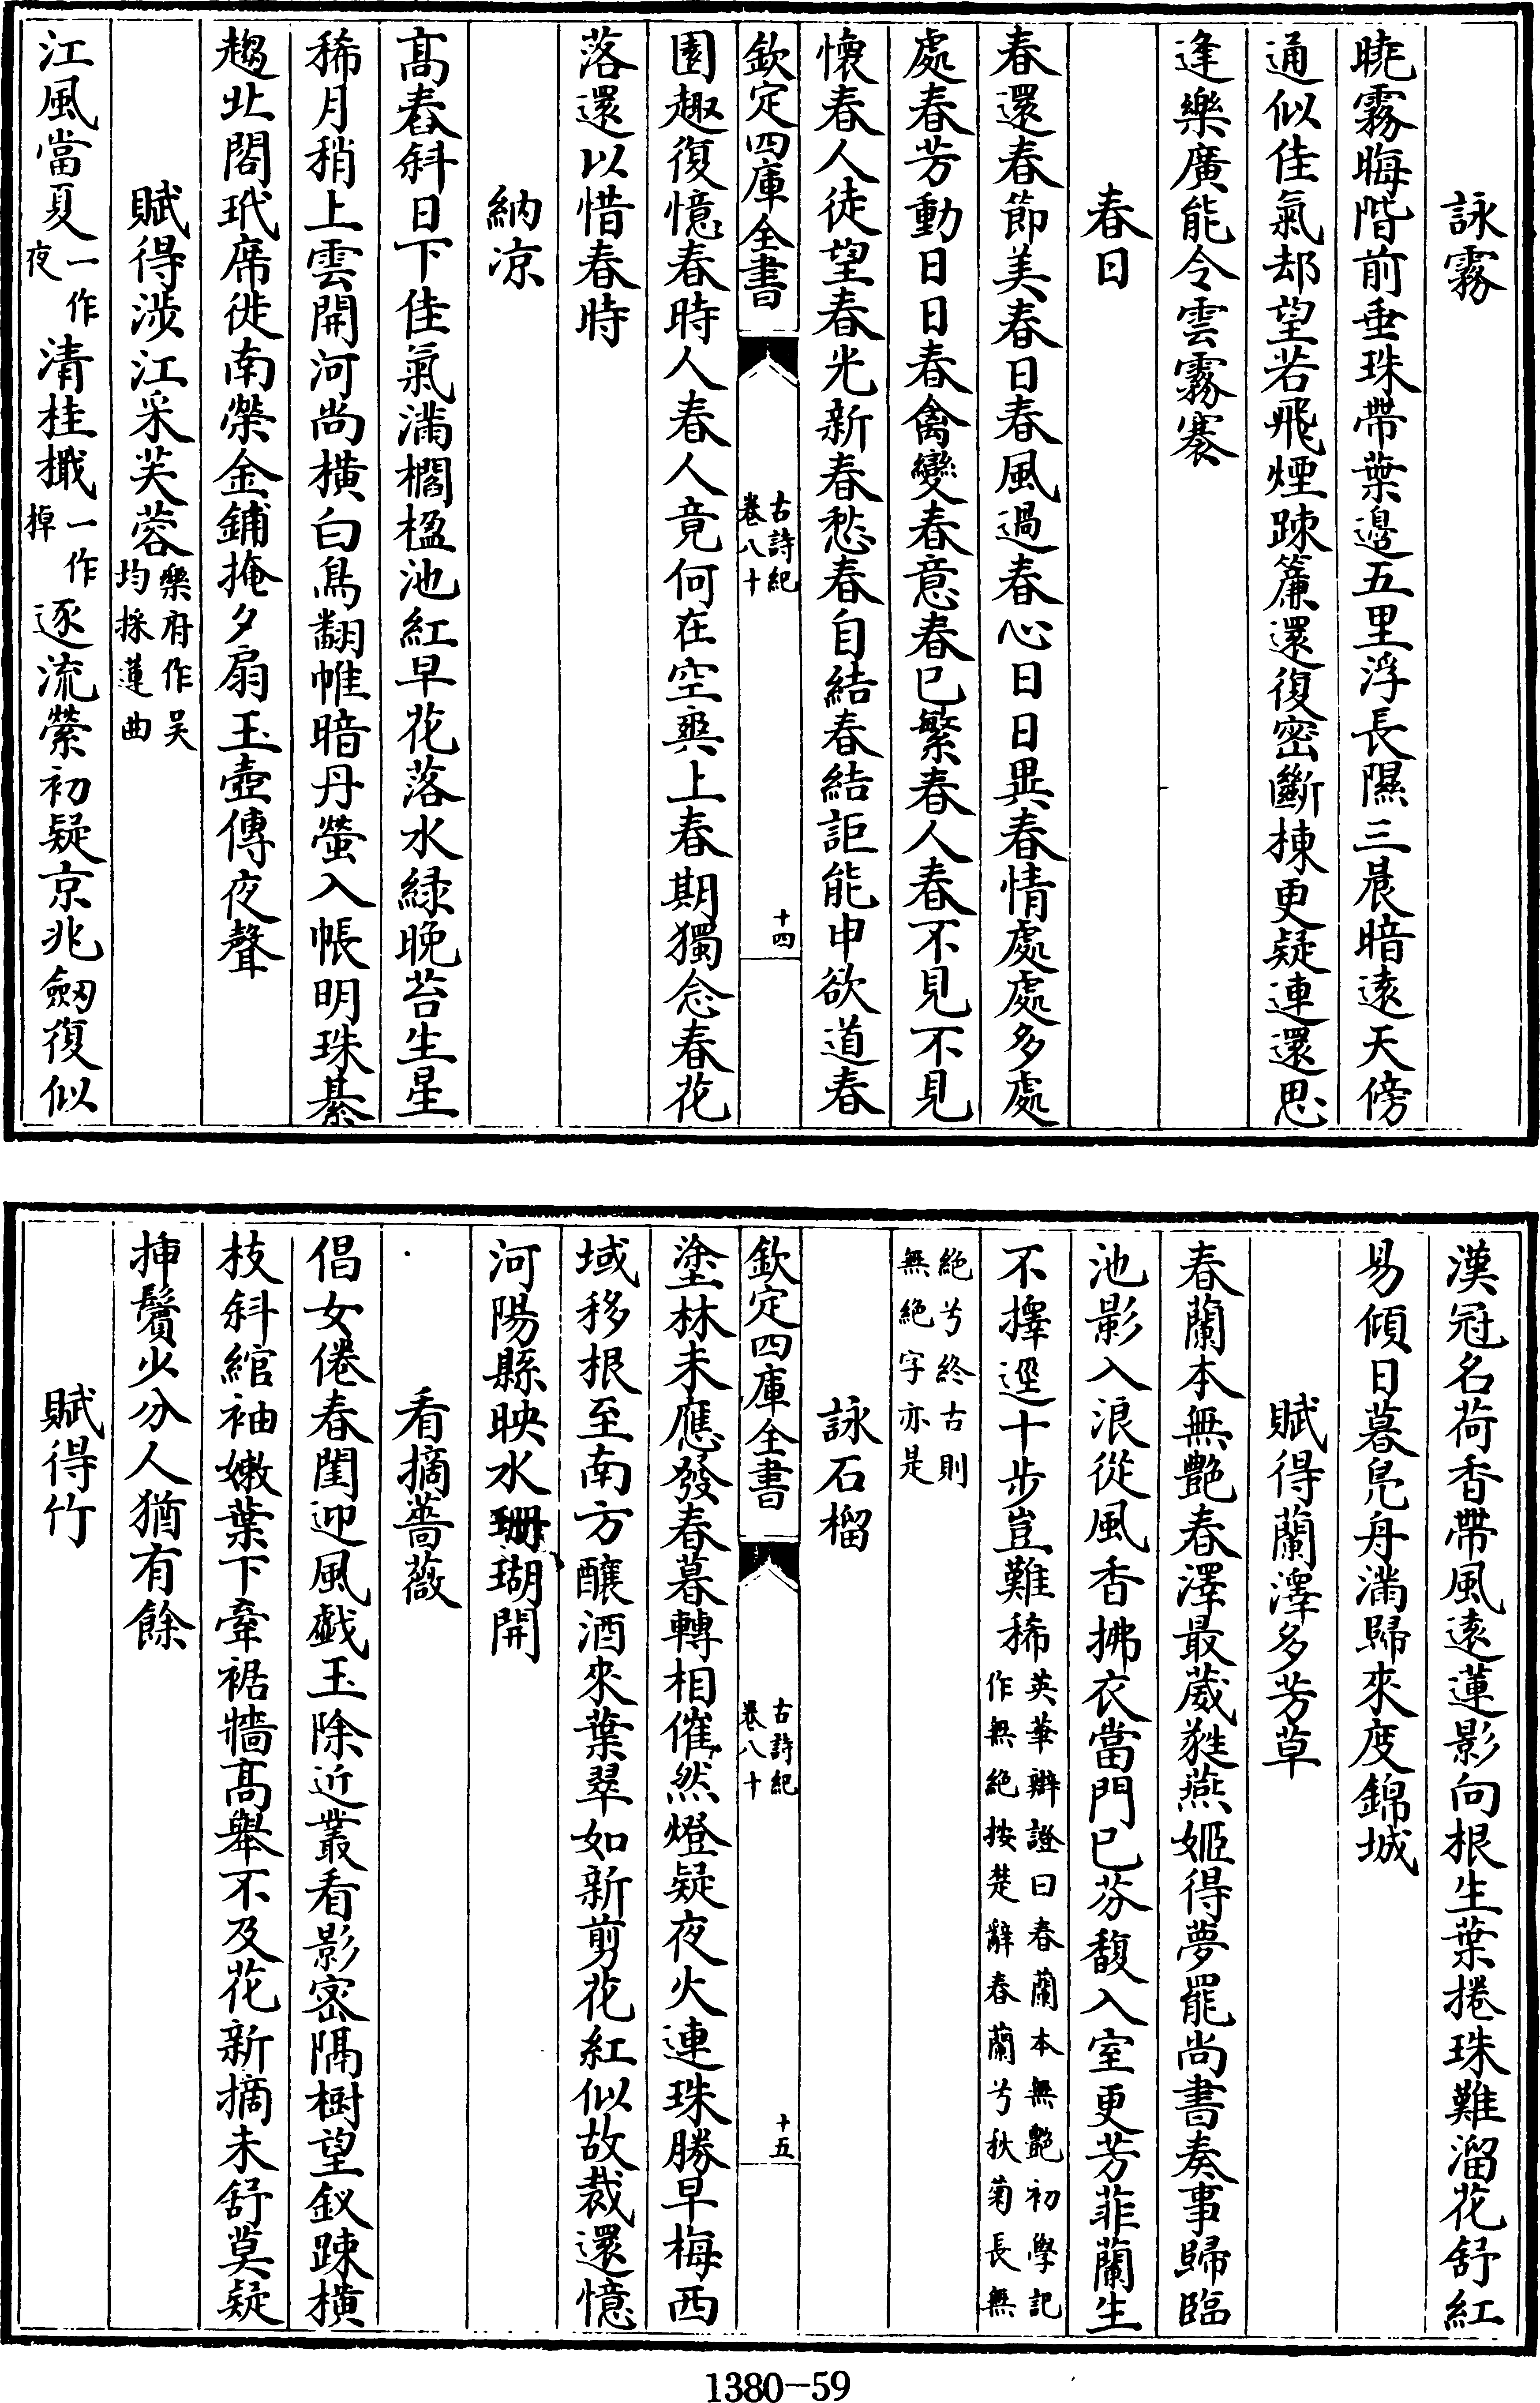 詠霧
曉霧晦階前垂珠帶葉邊五里浮長隰三晨暗遠天傍
通似佳氣却望若飛煙踈簾還復密斷棟更疑連還思
逢樂廣能令雲霧褰
春日
春還春節美春日春風過春心日日異春情處處多處
處春芳動日日春禽變春意春已繁春人春不見不見
懷春人徒望春光新春愁春自結春結詎能申欲道春
欽定四庫全書
古詩紀
卷八十
十四
園趣復憶春時人春人竟何在空爽上春期獨念春花
落還以惜春時
納凉
髙舂斜日下佳氣滿櫩楹池紅早花落水緑晚苔生星
稀月稍上雲開河尚横白鳥翻帷暗丹螢入帳明珠綦
趨北閣玳席徙南榮金鋪掩夕扇玉壺傳夜聲
賦得渉江采芙蓉樂府作吴均採蓮曲
江風當夏一作夜清桂檝一作棹逐流縈初疑京兆劒復似
漢冠名荷香帶風遠蓮影向根生葉捲珠難溜花舒紅
易傾日暮鳬舟滿歸來度錦城
賦得蘭澤多芳草
春蘭本無艷春澤最葳蕤燕姬得夢罷尚書奏事歸臨
池影入浪從風香拂衣當門已芬馥入室更芳菲蘭生
不擇逕十步豈難稀英華辯證曰春蘭本無艷初學記作無絶按楚辭春蘭兮秋菊長無
絶兮終古則無絶字亦是
詠石榴
欽定四庫全書
古詩紀
卷八十
十五
塗林未應發春暮轉相催然燈疑夜火連珠勝早梅西
域移根至南方釀酒來葉翠如新剪花紅似故裁還憶
河陽縣映水珊瑚開
看摘薔薇
倡女倦春閨迎風戲玉除近叢看影密隔樹望釵踈横
枝斜綰袖嫩葉下牽裾牆髙舉不及花新摘未舒莫疑
插鬢少分人猶有餘
賦得竹
1380-59